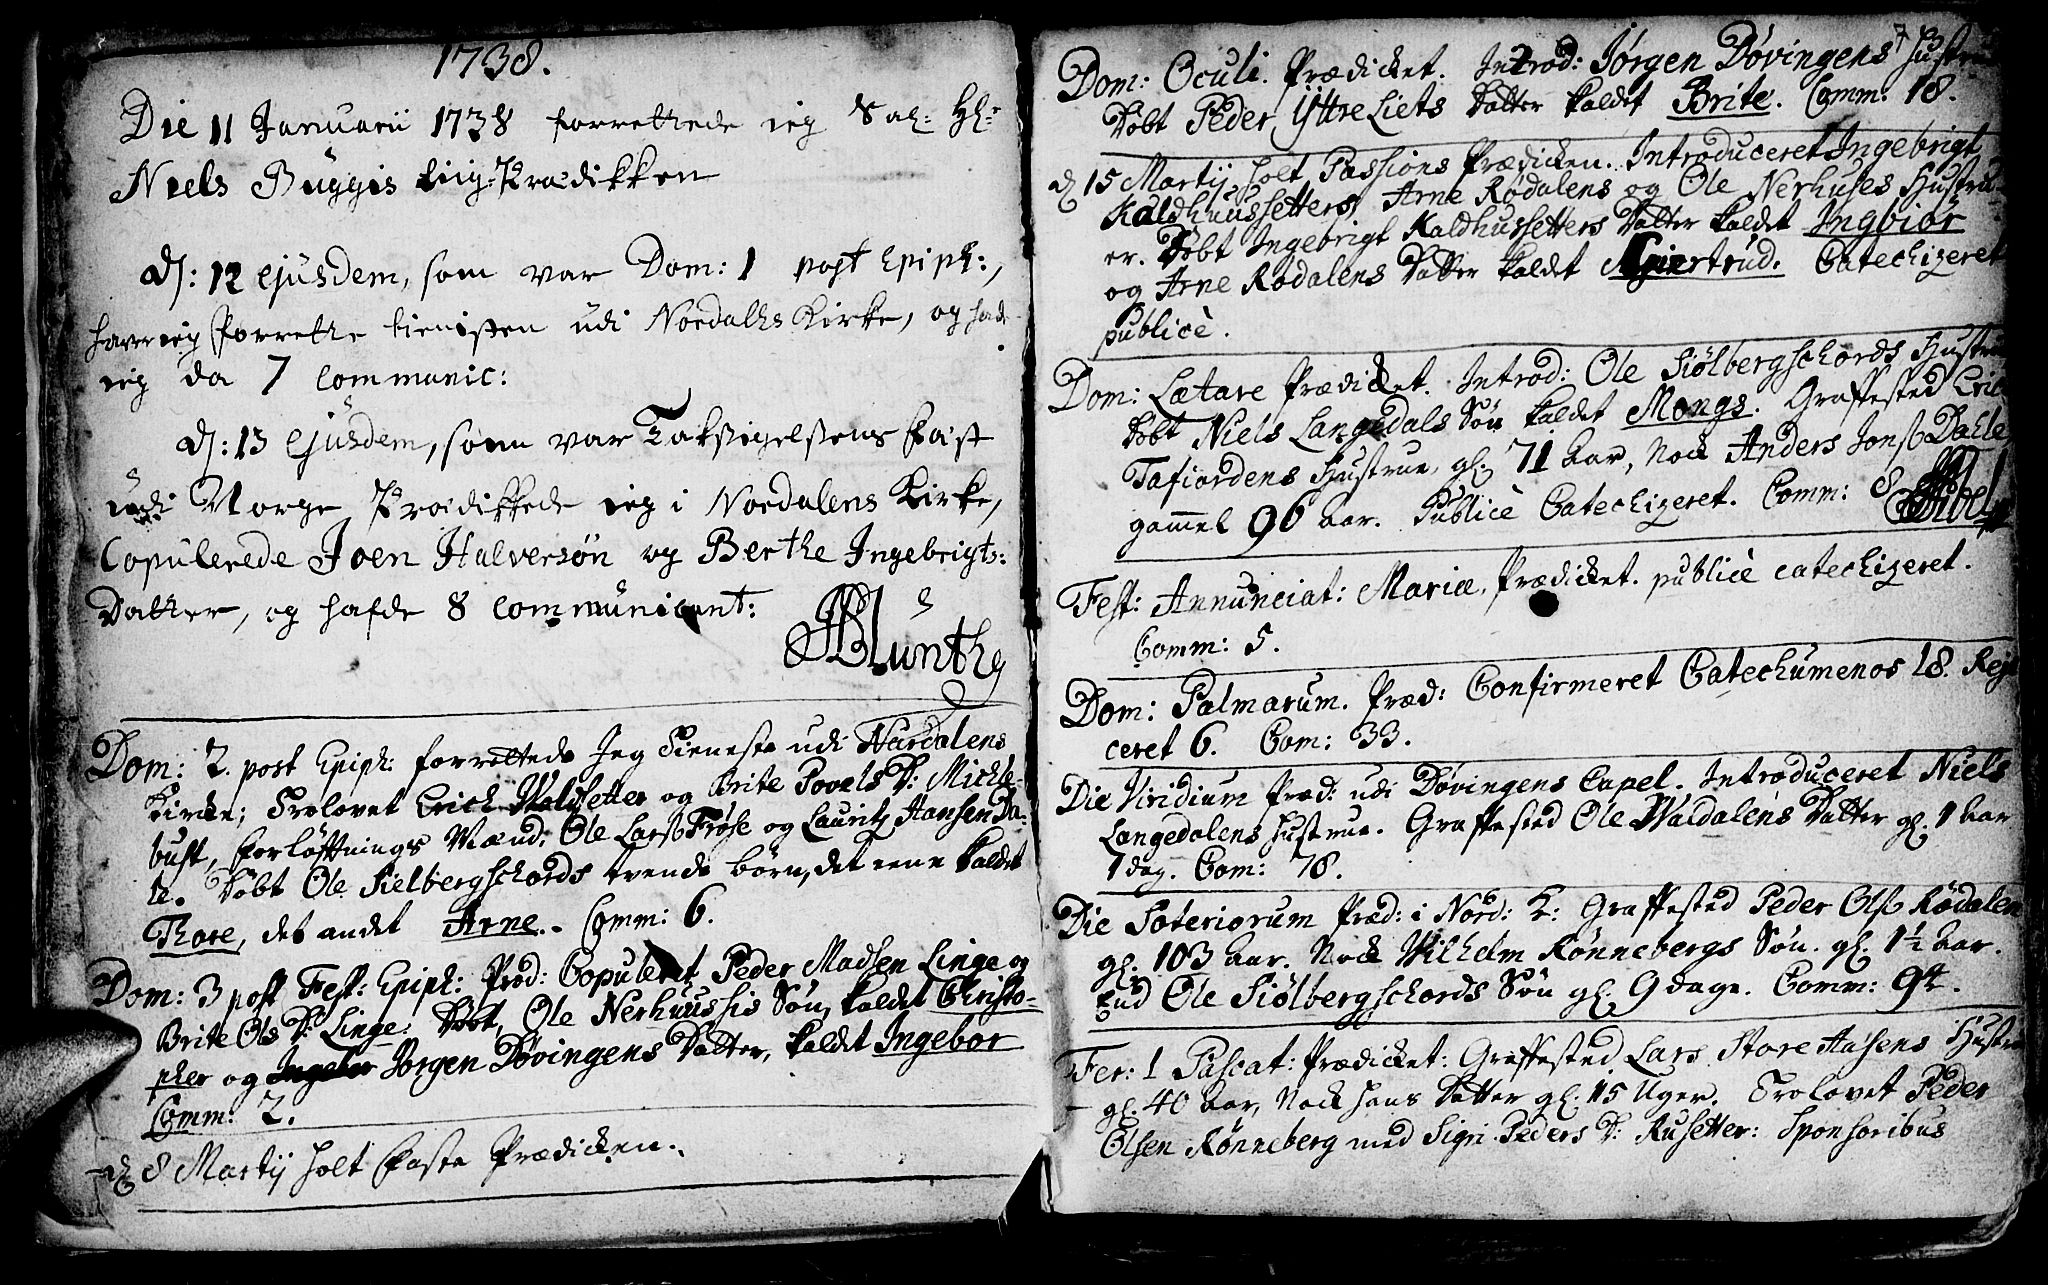 1738.
Die 11 Januarii 1738 forrettede ieg Sal: Hl:
Niels Buggis Liig-Prædikken
D: 12 ejusdem, som var Dom: 1 post Epiph:,
haver ieg forrette tienisten udi Nordalls Kirke, og had
ieg da 7 communic:
D: 13 ejusdem, som var Taksigelsens fæst
udi Norge Prædikkede ieg i Nordalens Kirke,
Copulerede Joen Halversøn og Berthe Ingebrigts:
Datter, og hafde 8 communicant:
Munthe
Dom: 2. post Epiph: forrettede Jeg Tieneste udi Nurdalens
Kirke; Trolovet Erich Waldsetter og Brite Povels D: Mickle-
bust, forløftnings Mænd: Ole Larsß Frøse og Lauritz Hansen Da-
le. Døbt Ole Sielbergschords tvende børn, det eene kaldet
Thore, det andet Arne. Comm: 6.
Dom: 3 post Fest: Epiph: Præd: Copuleret Peder Madsen Linge og
Brite Ols D: Linge: Døbt, Ole Nerhuussis Søn, kaldet Christo-
pher og Jørgen Døvingens Datter, kaldet Ingebor
Comm: 2.
d 8 Martij holt faste Prædicken.
7
Dom: Oculi. Prædicket. Introd: Jørgen Døvingens Hustru
Døbt Peder Ÿttre Liets Datter kaldet Brite. Comm: 18.
d 15 Martij holt Passions Prædicken. Introduceret Ingebrigt
Kaldhuussetters, Arne Rødalens og Ole Nerhuses Hustru-
er. Døbt Ingebrigt Kaldhussetters Datter kaldet Ingbiør
og Arne Rødalens Datter kaldet Giertrud. Catechizeret
publicè.
Dom: Lætare Prædicket. Introd: Ole Siølbergschords Hustru
Døbt Niels Langedals Søn kaldet Mongs. Graffested Eric
Tafiordens Hustrue, gl. 71 Aar, Nock Anders Jonsß Dahle
gammel 96 Aar. Publicè Catechizeret. Comm: 8
Fest: Annunciat: Mariæ, Prædicket. publicè catechizeret.
Comm: 5.
Dom: Palmarum. Præd: Confirmeret Catechumenos 18. Reji
ceret 6. Com: 33.
Die Viridium Præd: udi Døvingens Capel. Introduceret Niels
Langedalens Hustrue. Graffested Ole Waldalens Datter gl. 1 Aar
1 dag. Com: 78.
Die Soteriorum Præd: i Nord: K: Graffested Peder Olsß Rødalen
gl. 103 Aar. Nock Wilhelm Rønnebergs Søn. gl. 1½ Aar.
End Ole Siølbergschords Søn gl. 9 dage. Comm: 94.
Fer: 1 Pascat: Prædicket: Graffested Lars Store Aasens Hustru
gl. 40 Aar, Nock hans Datter gl. 15 Uger. Trolovet Peder
Olsen Rønneberg med Sigri Peders D: Rusetter: Sponsoribus